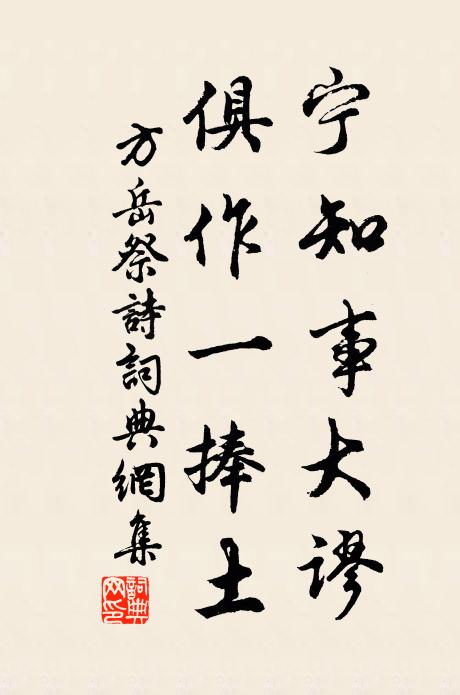 宁知事大謬
俱作一捧土
方岳祭詩詞典網集
詞典